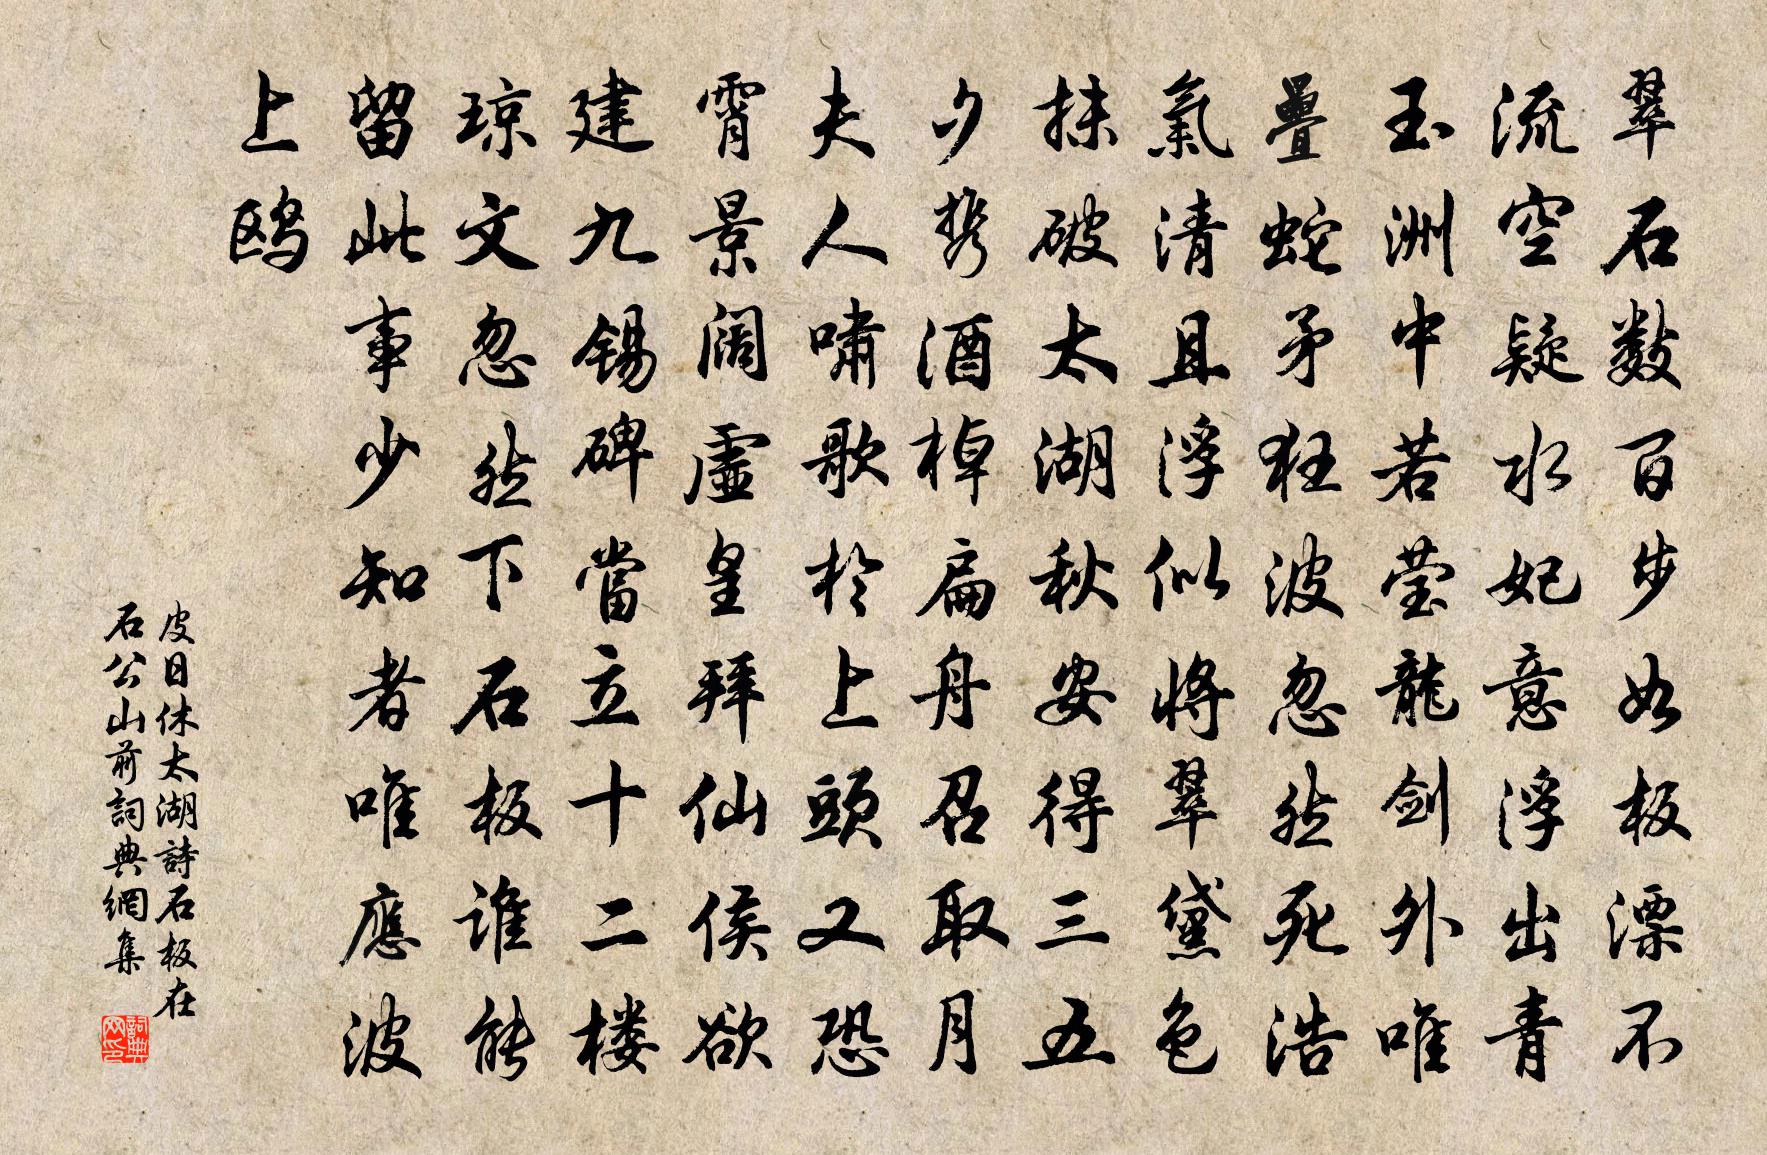 翠石數百步如板漂不
流空疑水妃意浮出青
玉洲中若莹龍剑外唯
疊蛇矛狂波忽然死浩
氣清且浮似將翠黛色
抹破太湖秋安得三五
夕携酒棹扁舟召取月
夫人啸歌於上頭又恐
霄景阔虚皇拜仙侯欲
建九锡碑當立十二楼
琼文忽然下石板谁能
留此事少知者唯應波
上鸥
皮日休太湖詩石板在
石公山前詞典網集
詞典网印